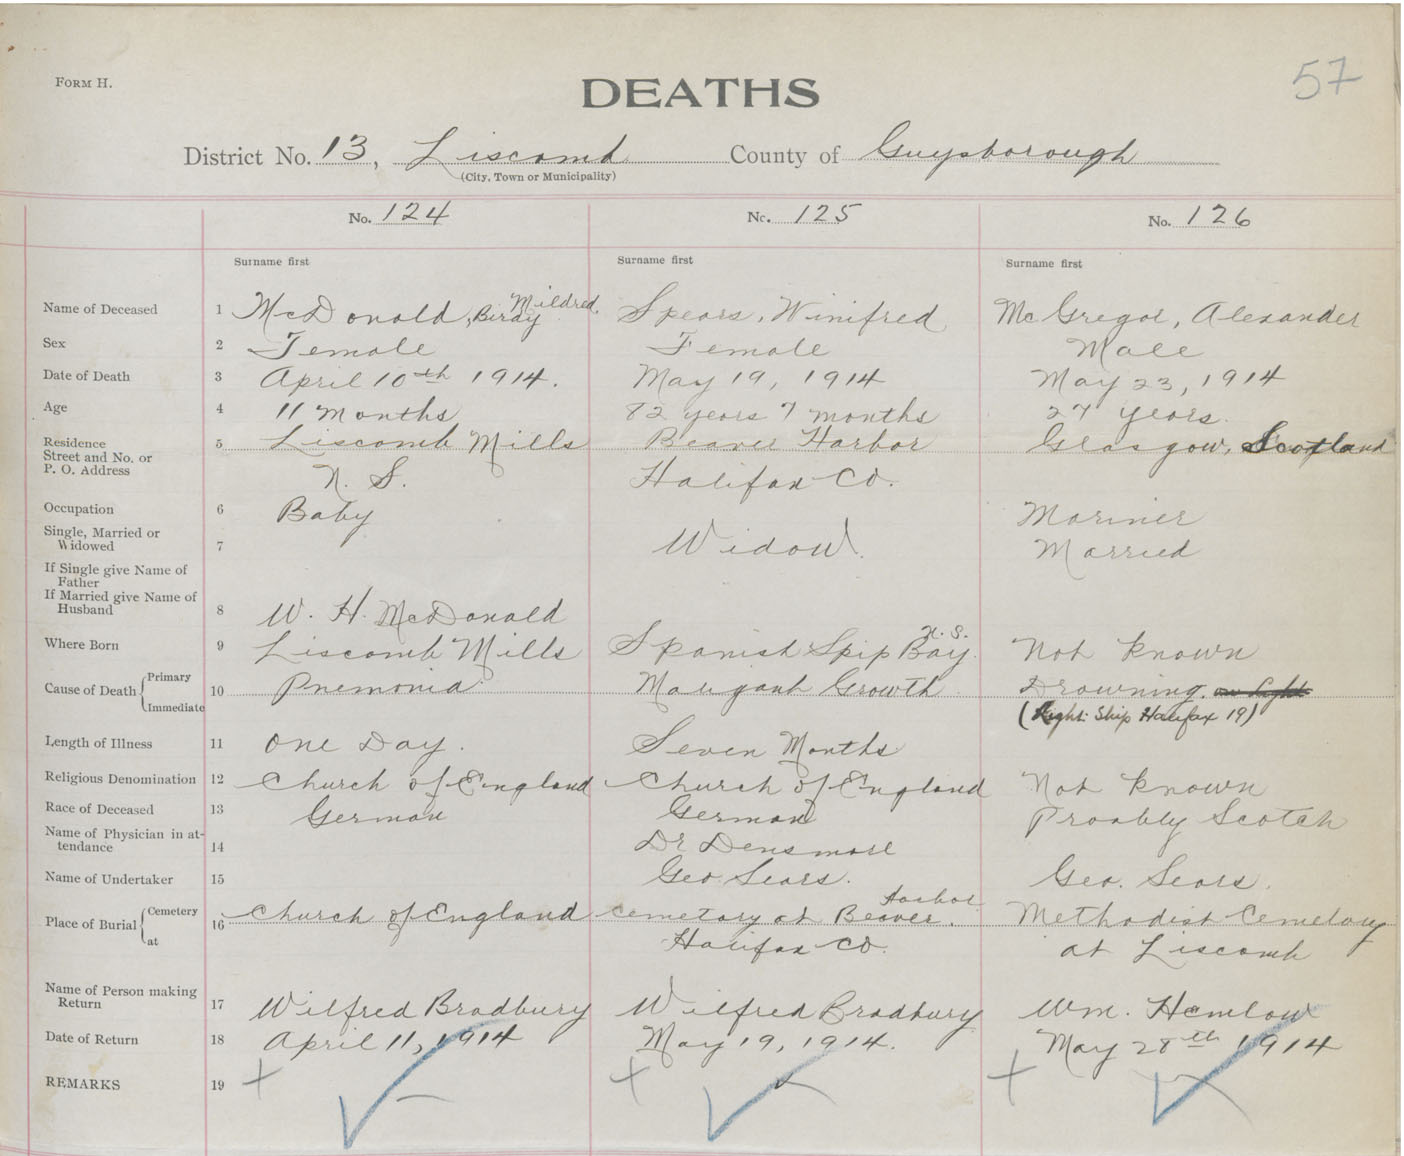 FORM H.
DEATHS
57
District No. 13, Liscomb County of Guysborough
(City, Town or Municipality)
No. 124 No. 125 No. 126
Surname first Surname first Surname first
Name of Deceased 1 McDonald, Birdy Mildred. Spears, Winifred McGregor, Alexander
Sex 2 Female Female Male
Date of Death 3 April 10th 1914. May 19, 1914 May 23, 1914
Age 4 11 Months 82 years 7 months 27 years.
Residence Street and No. or P. O. Address 5 Liscomb Mills Beaver Harbor Glasgow, Scotland
N. S. Halifax Co.
Occupation 6 Baby Mariner
Single, Married or Widowed 7 Widow. Married
If Single give Name of Father
If Married give Name of Husband 8 W. H. McDonald
Where Born 9 Liscomb Mills Spanish Spip Bay. N. S. Not known
Cause of Death Primary Immediate 10 Pnemonia Malignant Growth Drowning. on Light
(Light Ship Halifax 19)
Length of Illness 11 One Day. Seven Months
Religious Denomination 12 Church of England Church of England Not known
Race of Deceased 13 German German Proably Scotch
Name of Physician in attendance 14 Dr Densmore
Name of Undertaker 15 Geo. Sears. Geo. Sears.
Place of Burial Cemetery at 16 Church of England Cemetary at Beaver Harbor. Methodist Cemetary
Halifax Co. at Liscomb
Name of Person making Return 17 Wilfred Bradbury Wilfred Bradbury Wm. Hemlow
Date of Return 18 April 11, 1914 May 19, 1914. May 28th 1914
REMARKS 19